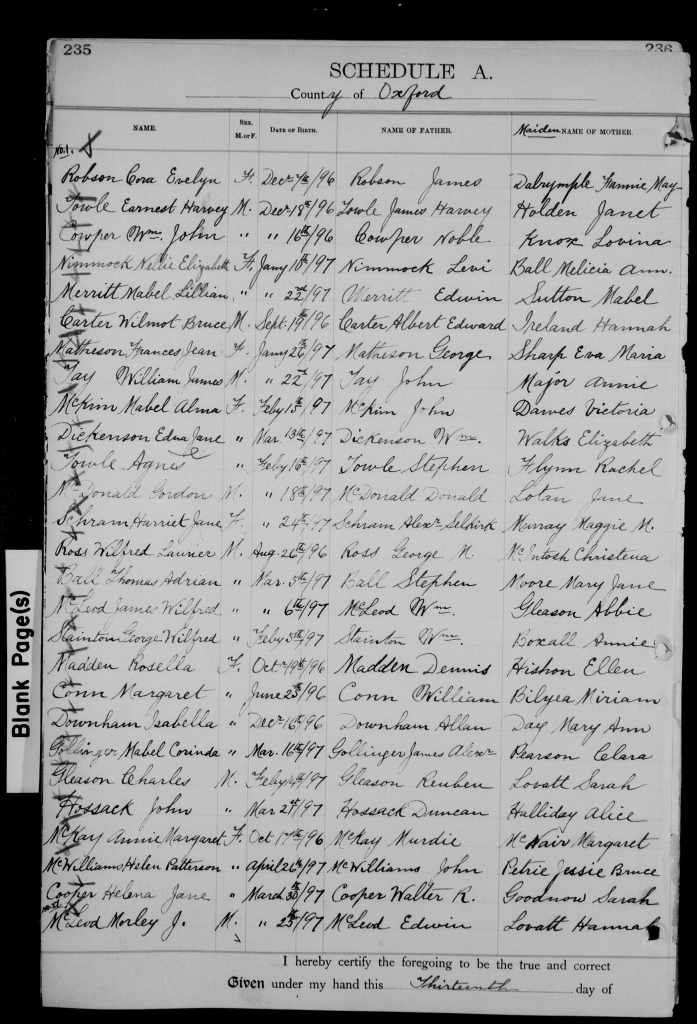 235 236
SCHEDULE A.
County of Oxford
NAME. SEX. M. or F. DATE OF BIRTH. NAME OF FATHER. Maiden NAME OF MOTHER.
No. 1.
Robson Cora Evelyn F. Decr 7th/96 Robson James Dalrymple Fannie May
Towle Earnest Harvey M. Decr 18th/96 Towle James Harvey Holden Janet
Cowper Wm. John " " 16th/96 Cowper Noble Knox Lovina
Nimmock Nellie Elizabeth F. Jany 10th/97 Nimmock Levi Ball Melicia Ann.
Merritt Mabel Lillian " " 22nd/97 Merritt Edwin Sutton Mabel
Carter Wilmot Bruce M. Sept. 19th/96 Carter Albert Edward Ireland Hannah
Matheson Frances Jean F. Jany 26th/97 Matheson George Sharp Eva Maria
Tay William James M. " 22nd/97 Tay John Major Annie
McKim Mabel Alma F. Feby 15th/97 McKim John Dawes Victoria
Dickenson Edna Jane " Mar. 13th/97 Dickenson Wm. Walks Elizabeth
Towle Agnes " Feby 16th/97 Towle Stephen Flynn Rachel
McDonald Gordon M. " 18th/97 McDonald Donald Lotan Jane
Schram Harriet Jane F. " 24th/97 Schram Alexr Selkirk Murray Maggie M.
Ross Wilfred Laurier M. Aug. 26th/96 Ross George M. McIntosh Christena
Ball Thomas Adrean " Mar. 5th/97 Ball Stephen Moore Mary Jane
McLeod James Wilfred " " 6th/97 McLeod Wm. Gleason Abbie
Stainton George Wilfred " Feby 5th/97 Stainton Wm. Boxall Annie
Madden Rosella F. Oct. 19th/96 Madden Dennis Hishon Ellen
Conn Margaret " June 23rd/96 Conn William Bilyea Miriam
Downham Isabella " Decr 16th/96 Downham Allan Day Mary Ann
Gollinger Mabel Corinda " Mar. 16th/97 Gollinger James Alexr Pearson Clara
Gleason Charles M. Feby 4th/97 Gleason Reuben Lovatt Sarah
Hossack John " Mar 2nd/97 Hossack Duncan Halliday Alice
McKay Annie Margaret F. Oct 17th/96 McKay Murdie McNair Margaret
McWilliams Helen Patterson " April 26th/97 McWilliams John Petrie Jessie Bruce
Cooper Helena Jane " March 30th/97 Cooper Walter R. Goodnow Sarah
McLeod Morley J. M. " 25th/97 McLeod Edwin Lovatt Hannah
I hereby certify the foregoing to be the true and correct
Given under my hand this Thirteenth day of
Blank Page(s)